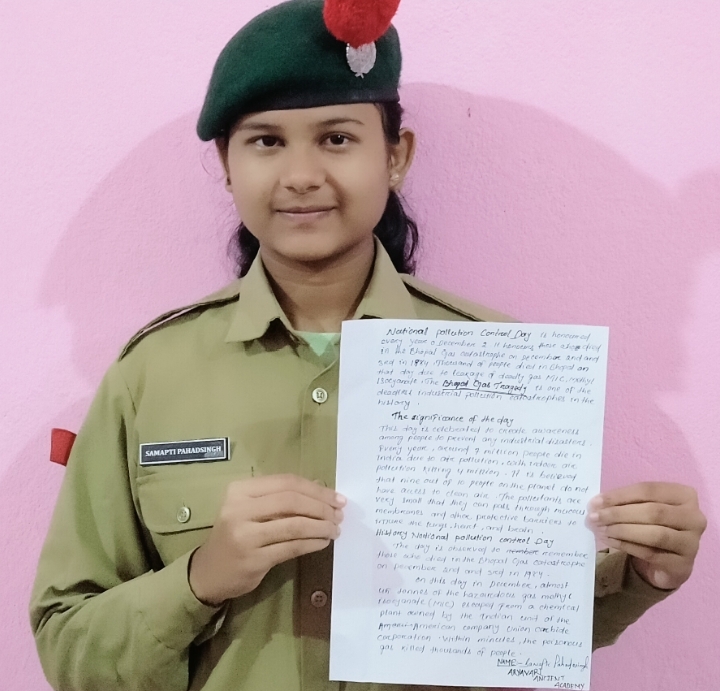 SAMAPTI PAHADSINGH
National pollution Control Day is honoured
every year on December 2 it honours those who died
in the Bhopal Gas catastrophe on December 2nd and
3rd in 1984. Thousand of people died in Bhopal on
that day due to leakage of deadly gas MIC, methyl
Isocyanite. The Bhopal Gas Tragedy is one of the
deadliest industrial pollution catastrophes in the
history.
The significance of the day
This day is celebrated to create awareness
among people to prevent any industrial disasters.
Every year, around 7 million people die in
India due to air pollution, with indoor air
pollution killing 4 million. It is believed
that nine out of 10 people on the planet do not
have access to clean air. The pollutants are
very small that they can pass through mucous
membranes and other protective barriers to
injure the lungs, heart, and brain.
History National pollution control Day
The day is observed to remember
those who died in the Bhopal Gas catastrophe
on December 2nd and 3rd in 1984.
On this day in December, almost
tonnes of the hazardous gas methyl
isocyanate (MIC) escaped from a chemical
plant owned by the Indian unit of the
American company Union carbide
corporation. Within minutes, the poisonous
gas killed thousands of people.
NAME - Samapti Pahadsingh
ARYAVART ANCIENT
ACADEMY